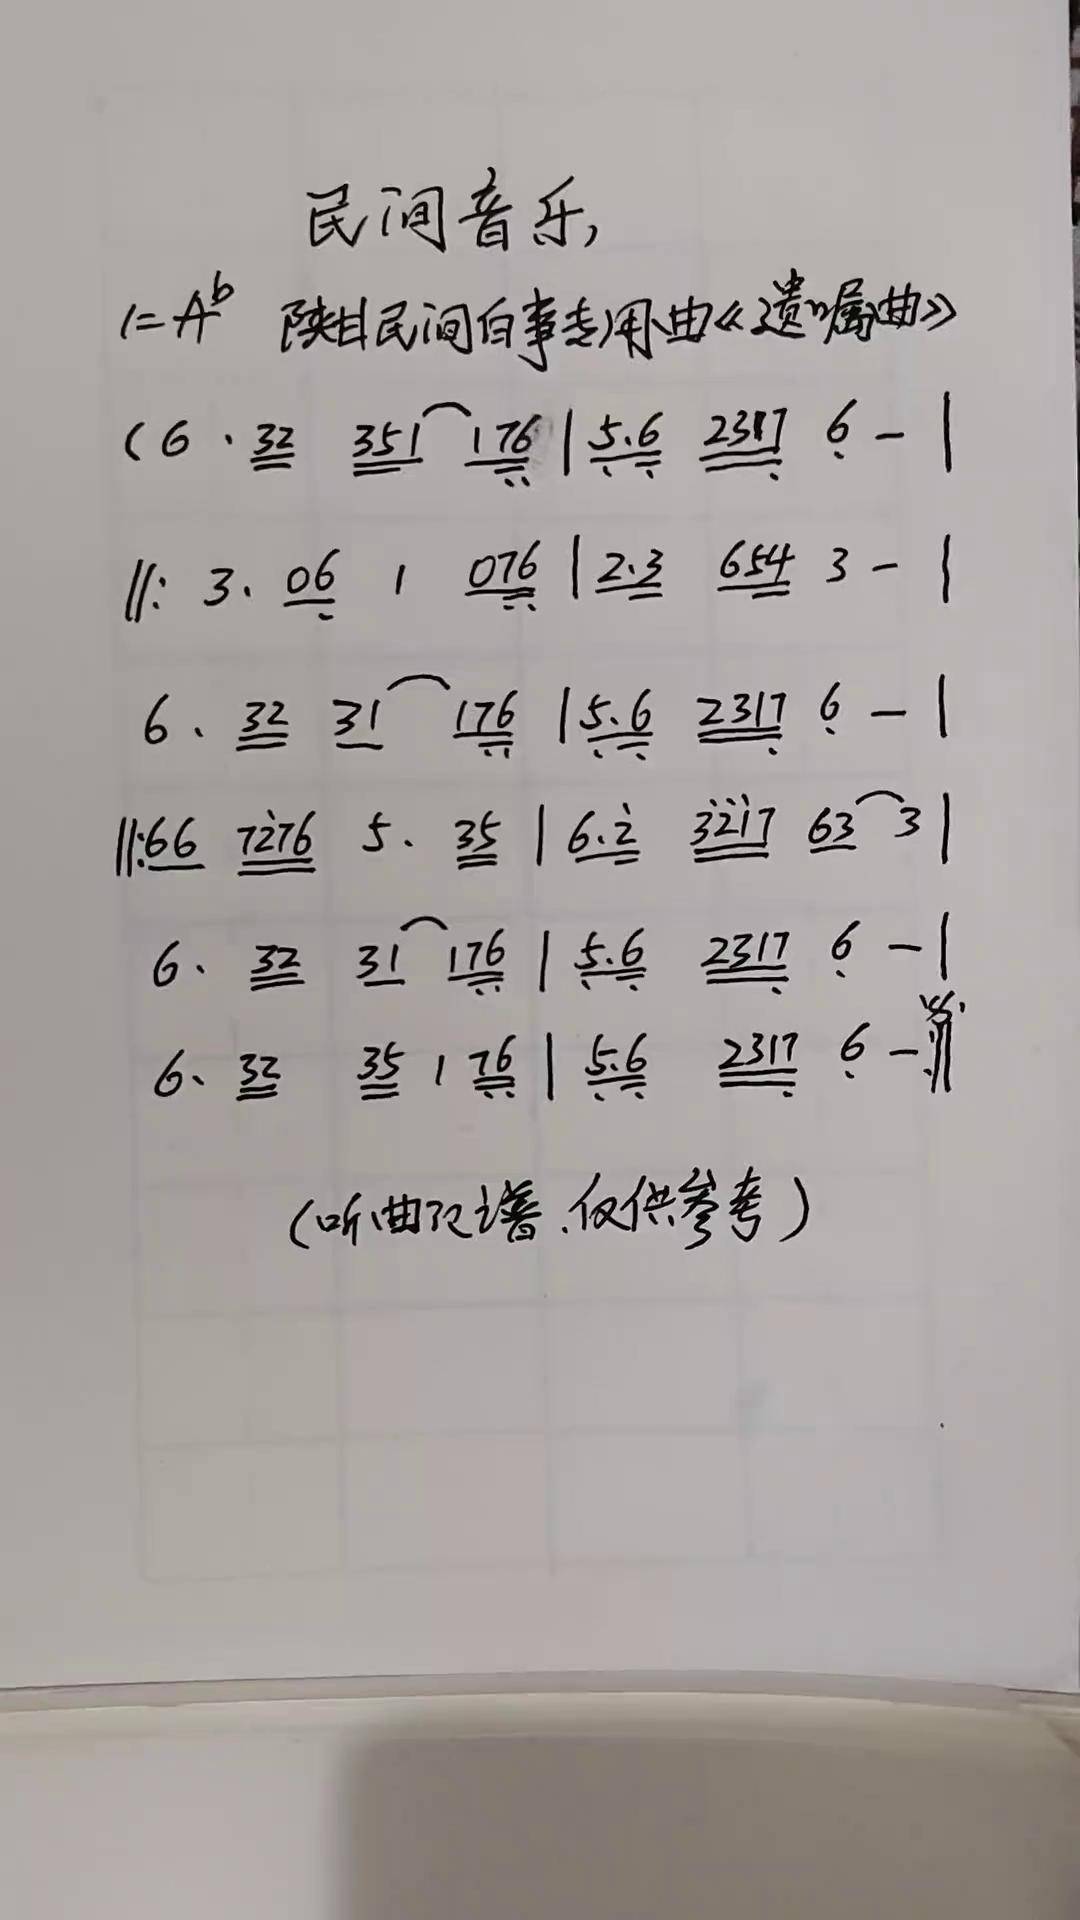 民间音乐,
1=A♭ 陕甘民间白事专用曲《遗嘱曲》
(6 · 32 351 176 | 5.6 2317 6 - |
‖: 3. 06 1 076 | 2.3 654 3 - |
6 · 32 31 176 | 5.6 2317 6 - |
‖: 66 7276 5. 35 | 6.2 3217 63 3 |
6. 32 31 176 | 5.6 2317 6 - |
6. 32 35 1 76 | 5.6 2317 6 - :‖
(听曲记谱.仅供参考)